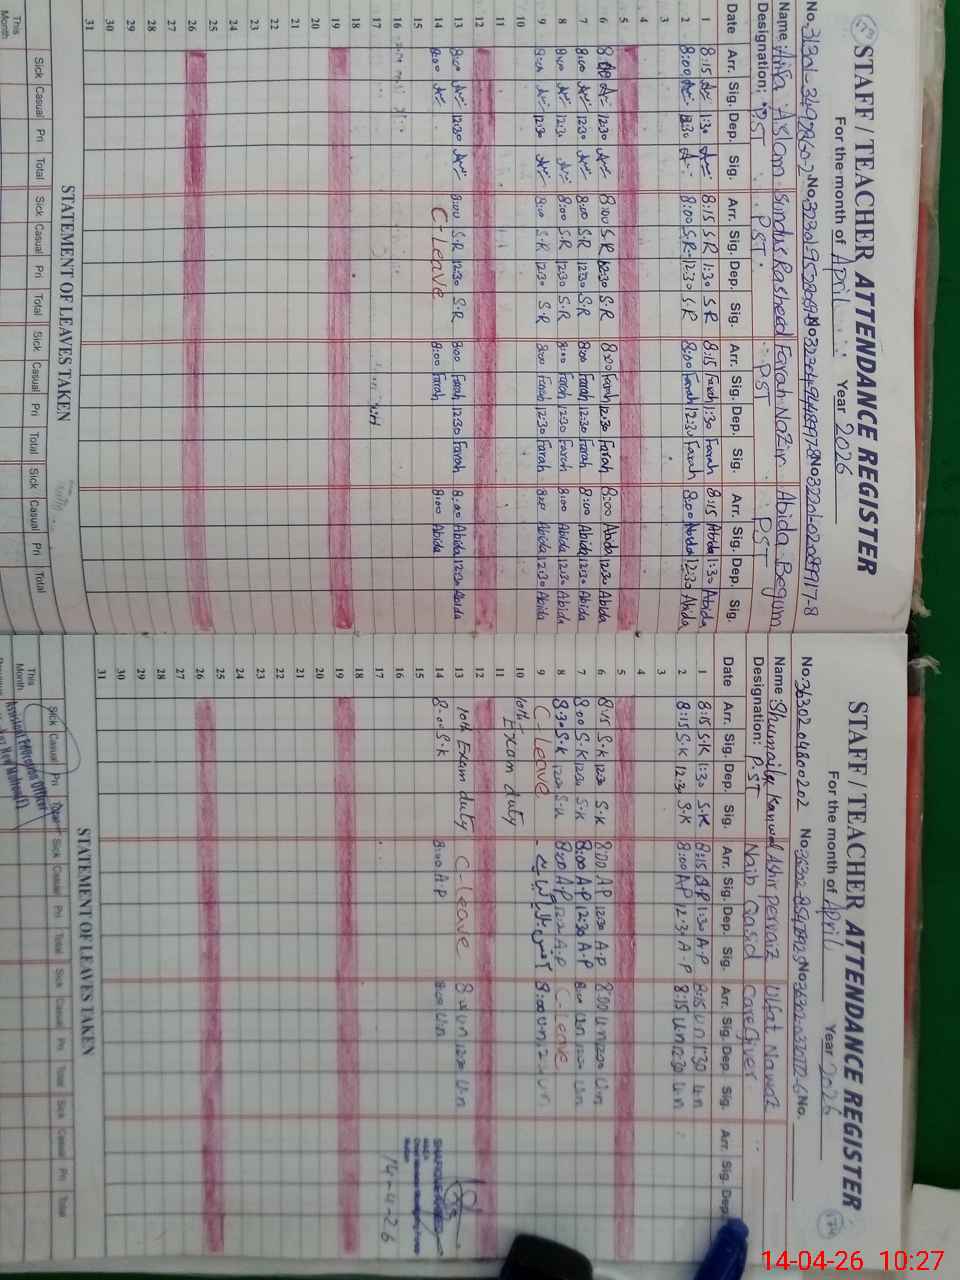 173
STAFF / TEACHER ATTENDANCE REGISTER
For the month of April Year 2026
Name: Asifa Aslam Sundus Rasheed Farah Nazir Abida Begum
Designation: PST PST PST PST
Date Arr. Sig. Dep. Sig. Arr. Sig. Dep. Sig. Arr. Sig. Dep. Sig. Arr. Sig. Dep. Sig.
1 8:15 1:30 8:15 S.R 1:30 S.R 8:15 Farah 1:30 Farah 8:15 Abida 1:30 Abida
2 8:00 12:30 8:00 S.R 12:30 S.R 8:00 Farah 12:30 Farah 8:00 Abida 12:30 Abida
3
4
5
6 8:00 12:30 8:00 S.R 12:30 S.R 8:00 Farah 12:30 Farah 8:00 Abida 12:30 Abida
7 8:00 12:30 8:00 S.R 12:30 S.R 8:00 Farah 12:30 Farah 8:00 Abida 12:30 Abida
8 8:00 12:30 8:00 S.R 12:30 S.R 8:00 Farah 12:30 Farah 8:00 Abida 12:30 Abida
9 8:00 12:30 8:00 S.R 12:30 S.R 8:00 Farah 12:30 Farah 8:00 Abida 12:30 Abida
10
11
12
13 8:00 12:30 8:00 S.R 12:30 S.R 8:00 Farah 12:30 Farah 8:00 Abida 12:30 Abida
14 8:00 C-Leave 8:00 Farah 8:00 Abida
15
16
17
18
19
20
21
22
23
24
25
26
27
28
29
30
31
STATEMENT OF LEAVES TAKEN
Sick Casual Pri Total Sick Casual Pri Total Sick Casual Pri Total Sick Casual Pri Total
This Month
174
STAFF / TEACHER ATTENDANCE REGISTER
For the month of April Year 2026
No. 3630204800202 No.
Name Shumaila Kanwal Ashir pervaiz Ulfat Nawaz
Designation: P.ST Naib Qasid Care Giver
Date Arr. Sig. Dep. Sig. Arr. Sig. Dep. Sig. Arr. Sig. Dep. Sig. Arr. Sig. Dep.
1 8:15 S.K 1:30 S.K 8:15 A.P 1:30 A.P 8:15 U.n 1:30 U.n
2 8:15 S.K 12:30 S.K 8:00 A.P 12:30 A.P 8:15 U.n 12:30 U.n
3
4
5
6 8:15 S.K 12:30 S.K 8:00 A.P 12:30 A.P 8:00 U.n 12:30 U.n
7 8:00 S.K 12:30 S.K 8:00 A.P 12:30 A.P 8:00 U.n 12:30 U.n
8 8:30 S.K 12:30 S.K 8:00 A.P A.P C-Leave
9 C-Leave 8:00 U.n U.n
10 10th Exam duty
11
12
13 10th Exam duty C-Leave 8:00 U.n 12:30 U.n
14 8:00 S.K 8:00 A.P 8:00 U.n
15
16
17
18
19
20
21
22
23
24
25
26
27
28
29
30
31
14-4-26
STATEMENT OF LEAVES TAKEN
Sick Casual Pri Sick Casual Pri Total Sick Casual Pri Total Sick Casual Pri Total
This Month
Assistant Education Officer
14-04-26 10:27